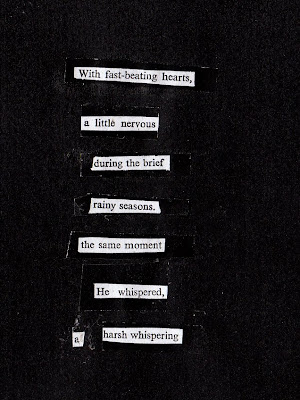 With fast-beating hearts,
a little nervous
during the brief
rainy seasons.
the same moment
He whispered,
a harsh whispering